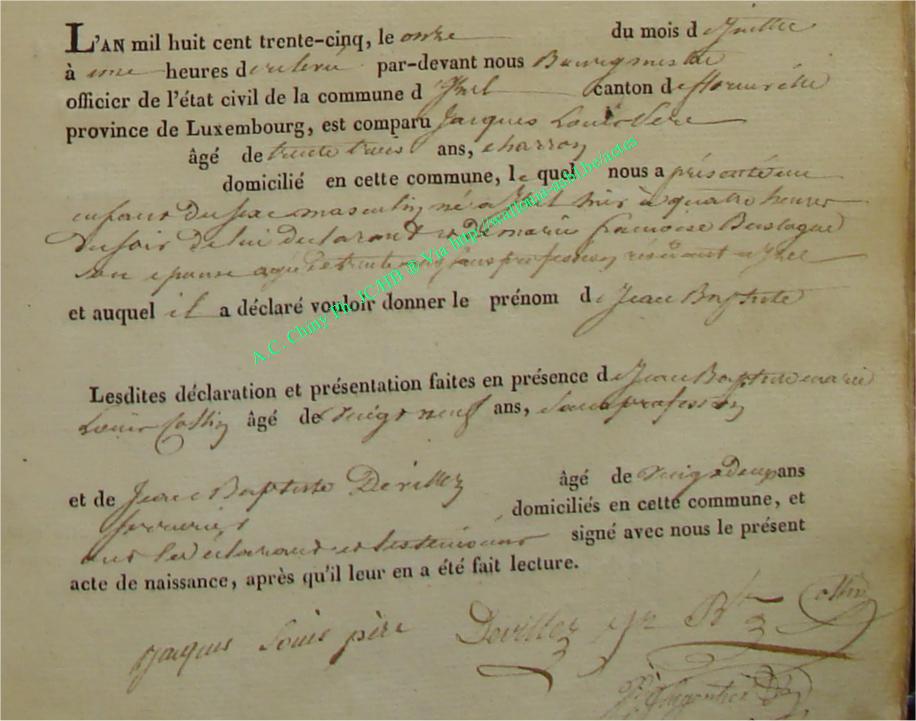 L'AN mil huit cent trente-cinq, le onze du mois de Juillet
à une heures de relevé par-devant nous Bourgmestre
officier de l'état civil de la commune d'Izel canton de florenville
province de Luxembourg, est comparu Jacques Louis Pere
âgé de trente trois ans, charron
domicilié en cette commune, le quel nous a présenté un
enfant du sexe masculin né à Izel hier à quatre heures
du soir de lui déclarant et de marie francoise
son epouse agée de trente ans sans profession résidant a Izel
et auquel il a déclaré vouloir donner le prénom de Jean Baptiste
Lesdites déclaration et présentation faites en présence de Jean Baptiste marie
Louis Collin âgé de vingt neuf ans, sans profession
et de Jean Baptiste Devillez âgé de vingt deux ans
domiciliés en cette commune, et
ont le déclarant et les témoins signé avec nous le présent
acte de naissance, après qu'il leur en a été fait lecture.
Jacques Louis père Devillez Jn Bte Collin
A.C. Chiny Ph. JCHB ® Via http://www.luxroots.be/actes